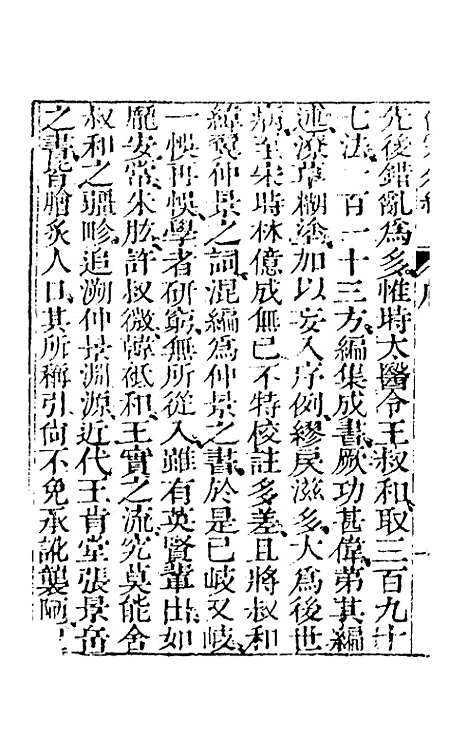 先後錯亂爲多惟時太醫令王叔和取三百九十
七法一百一十三方編集成書厥功甚偉第其編
述潦草糊塗加以妄入序例繆戾滋多大爲後世
病至宋時林億成無已不特校註多差且將叔和
緯翼仲景之詞混編爲仲景之書於是已岐又岐
一悞再悞學者研窮無所從入雖有英賢輩出如
龐安常朱肱許叔微韓祗和王實之流究莫能舍
叔和之疆畛追溯仲景淵源近代王肯堂張景岳
之書皆膾炙人口其所稱引尙不免承訛襲陋